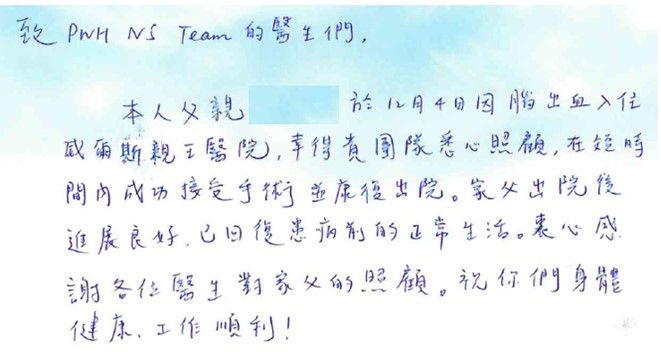 致 PWH NS Team 的醫生們,
本人父親 於12月4日因腦出血入住
威爾斯親王醫院,幸得貴團隊悉心照顧,在短時
間內成功接受手術並康復出院。家父出院後
進展良好,已回復患病前的正常生活。衷心感
謝各位醫生對家父的照顧。祝你們身體
健康、工作順利!